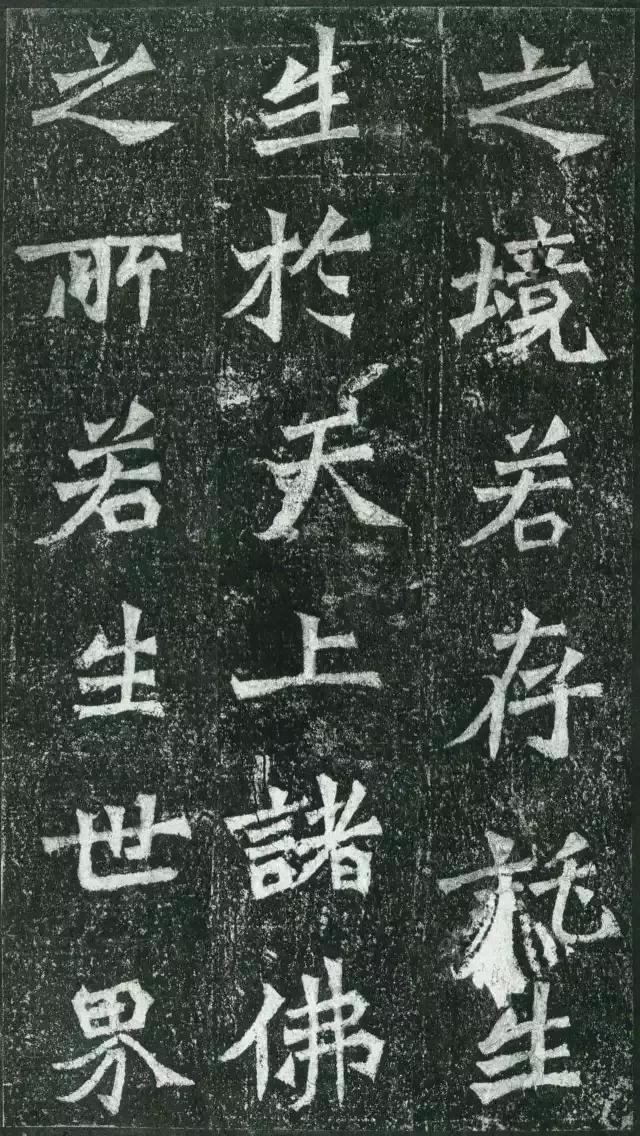 之境若存托生
生於天上諸佛
之所若生世界